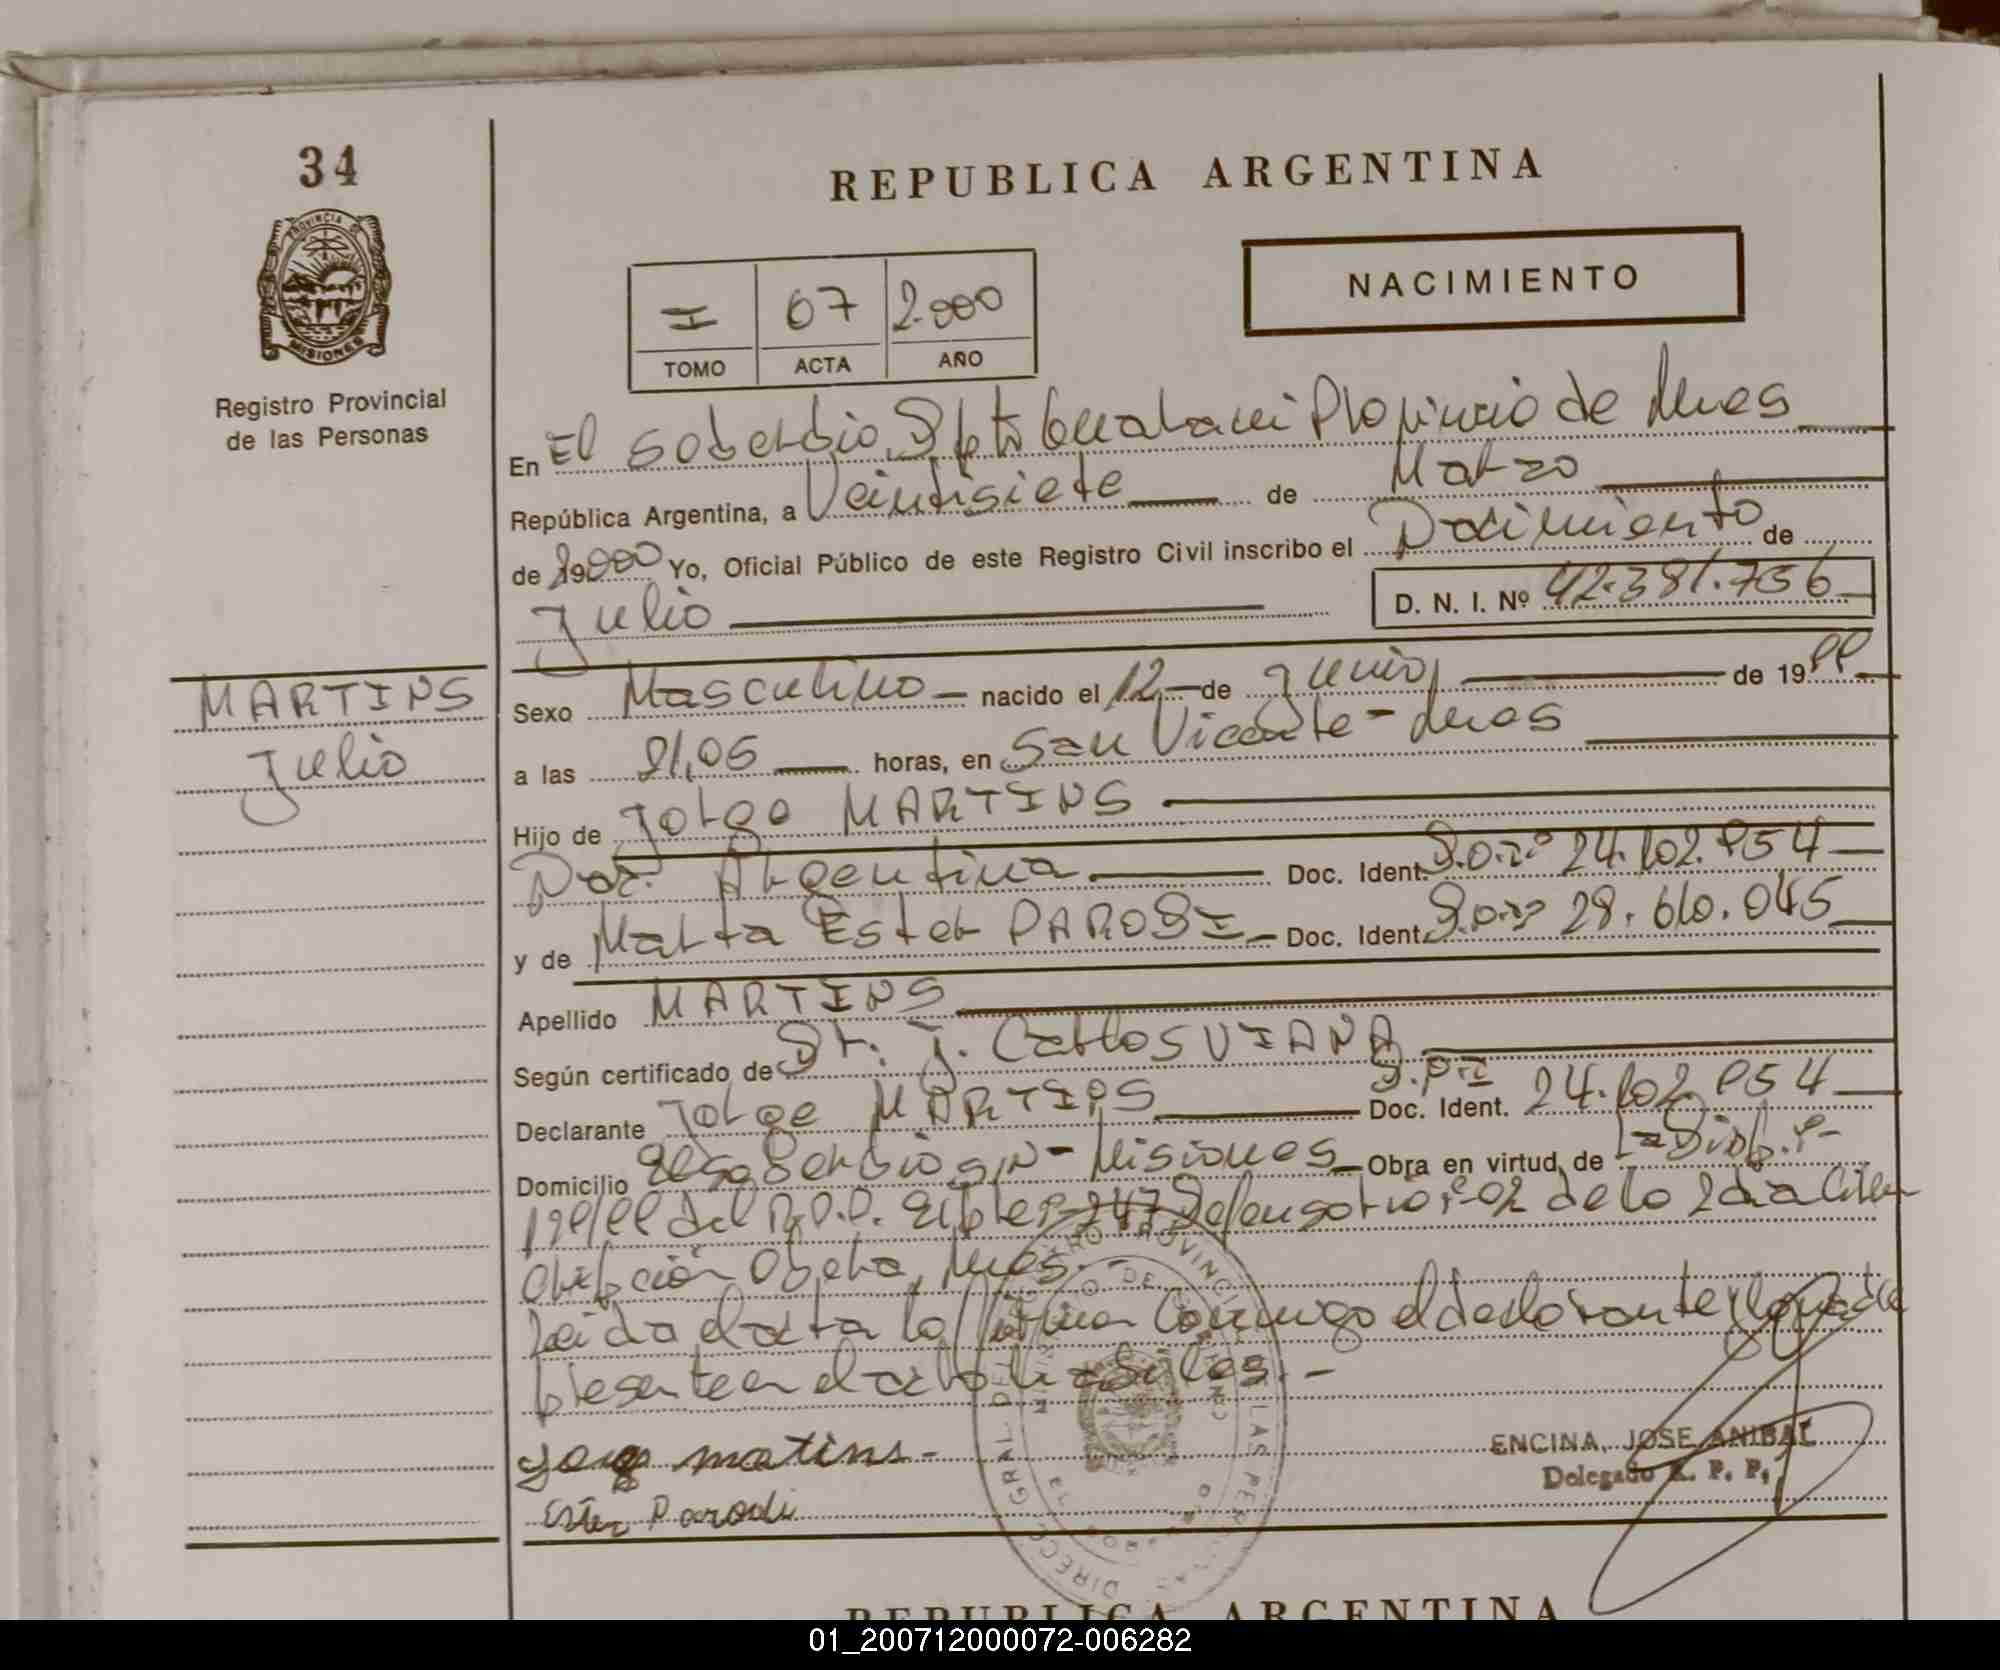 34
PROVINCIA DE
MISIONES
Registro Provincial
de las Personas
MARTINS
Julio
REPUBLICA ARGENTINA
I 67 2.000
TOMO ACTA AÑO
NACIMIENTO
En El Soberbio, Dpto Guarani Provincia de Mnes
República Argentina, a Veintisiete de Marzo
de 2.000 Yo, Oficial Público de este Registro Civil inscribo el Nacimiento de
Julio D. N. I. Nº 42.381.756
Sexo Masculino nacido el 12 de Junio de 1999
a las 21,05 horas, en San Vicente - Mnes
Hijo de Jorge MARTINS
Nac. Argentina Doc. Ident. D.N.I. 24.102.954
y de Marta Ester PARODI Doc. Ident. D.N.I. 28.610.045
Apellido MARTINS
Según certificado de Dr. J. Carlos VIANA
Declarante Jorge MARTINS Doc. Ident. D.N.I 24.102.954
Domicilio El Soberbio S/N - Misiones Obra en virtud de La Disp.
del R.P.P. Expte 247 Defensoria nº 02 de la 2da Circuns
cripción Obera, Mnes.-
Leida el acta la firman conmigo el declarante y la madre
presente en el acto
Jorge matins-
Ester Parodi
ENCINA, JOSE ANIBAL
Delegado R. P. P.
REPUBLICA ARGENTINA
01_200712000072-006282